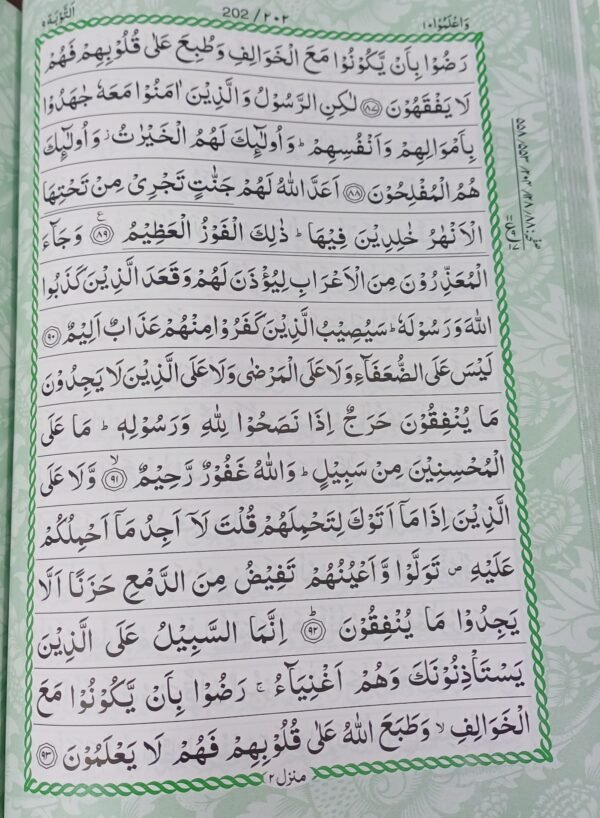 وَاعْلَمُوْٓا ١٠
202 / ٢٠٢
اَلتَّوْبَة ٩
رَضُوْا بِاَنْ يَّكُوْنُوْا مَعَ الْخَوَالِفِ وَطُبِعَ عَلٰى قُلُوْبِهِمْ فَهُمْ
لَا يَفْقَهُوْنَ ۝٨٧ لٰكِنِ الرَّسُوْلُ وَالَّذِيْنَ اٰمَنُوْا مَعَهٗ جٰهَدُوْا
بِاَمْوَالِهِمْ وَاَنْفُسِهِمْ ؕ وَاُولٰٓئِكَ لَهُمُ الْخَيْرٰتُ ؗ وَاُولٰٓئِكَ
هُمُ الْمُفْلِحُوْنَ ۝٨٨ اَعَدَّ اللّٰهُ لَهُمْ جَنّٰتٍ تَجْرِيْ مِنْ تَحْتِهَا
الْاَنْهٰرُ خٰلِدِيْنَ فِيْهَا ؕ ذٰلِكَ الْفَوْزُ الْعَظِيْمُ ۝٨٩ ع وَجَآءَ
الْمُعَذِّرُوْنَ مِنَ الْاَعْرَابِ لِيُؤْذَنَ لَهُمْ وَقَعَدَ الَّذِيْنَ كَذَبُوا
اللّٰهَ وَرَسُوْلَهٗ ؕ سَيُصِيْبُ الَّذِيْنَ كَفَرُوْا مِنْهُمْ عَذَابٌ اَلِيْمٌ ۝٩٠
لَيْسَ عَلَى الضُّعَفَآءِ وَلَا عَلَى الْمَرْضٰى وَلَا عَلَى الَّذِيْنَ لَا يَجِدُوْنَ
مَا يُنْفِقُوْنَ حَرَجٌ اِذَا نَصَحُوْا لِلّٰهِ وَرَسُوْلِهٖ ؕ مَا عَلَى
الْمُحْسِنِيْنَ مِنْ سَبِيْلٍ ؕ وَاللّٰهُ غَفُوْرٌ رَّحِيْمٌ ۝٩١ ۙ وَّلَا عَلَى
الَّذِيْنَ اِذَا مَآ اَتَوْكَ لِتَحْمِلَهُمْ قُلْتَ لَآ اَجِدُ مَآ اَحْمِلُكُمْ
عَلَيْهِ ۪ تَوَلَّوْا وَّاَعْيُنُهُمْ تَفِيْضُ مِنَ الدَّمْعِ حَزَنًا اَلَّا
يَجِدُوْا مَا يُنْفِقُوْنَ ۝٩٢ ؕ اِنَّمَا السَّبِيْلُ عَلَى الَّذِيْنَ
يَسْتَاْذِنُوْنَكَ وَهُمْ اَغْنِيَآءُ ۚ رَضُوْا بِاَنْ يَّكُوْنُوْا مَعَ
الْخَوَالِفِ ۙ وَطَبَعَ اللّٰهُ عَلٰى قُلُوْبِهِمْ فَهُمْ لَا يَعْلَمُوْنَ ۝٩٣
منزل ٢